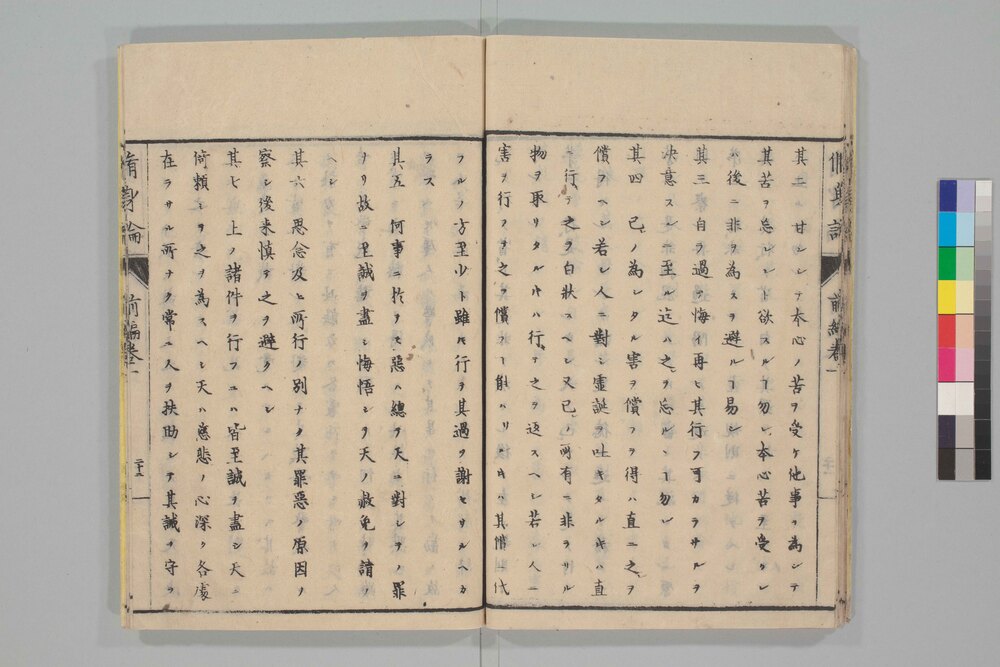 其二ハ甘シシテ本心ノ苦ヲ受ケ他事ヲ為シテ
其苦ヲ忘レント欲スルヿ勿レ本心苦ヲ受クレ
ハ後ニ非ヲ為スヲ避ルヿ易シ
其三自ラ過ヲ悔イ再ヒ其行フ可カラサルヲ
決意スルニ至ル迄ハ之ヲ忘ルヽ勿レ
其四己ノ為シタル害ヲ償フヲ得ハ直ニ之ヲ
償フヘシ若シ人ニ對シ虚誕ヲ吐キタルキハ直
行テ之ヲ白狀スヘシ又己ノ所有ニ非サル
物ヲ取リタルキハ行テ之ヲ返スヘシ若シ人ニ
害ヲ行フテ之ヲ償フヿ能ハサルキハ其償代
フルノ方至少ト雖モ行ヲ其過ヲ謝セサルヘカ
ラス
其五何事ニ於テモ惡ハ總テ天ニ對シテノ罪
ナリ故ニ至誠ヲ盡シ悔悟シテ天ノ赦免ヲ請フ
ヘシ
其六思念及ヒ所行ノ別ナク其罪惡ノ原因ヲ
察シ後来慎テ之ヲ避クヘシ
其七上ノ諸件ヲ行フニハ皆至誠ヲ盡シ天ニ
倚頼シテ之ヲ為スヘシ天ハ慈悲ノ心深ク各處
在ラサル所ナク常ニ人ヲ扶助シテ其誡ヲ守ラ
脩身論
前編巻一